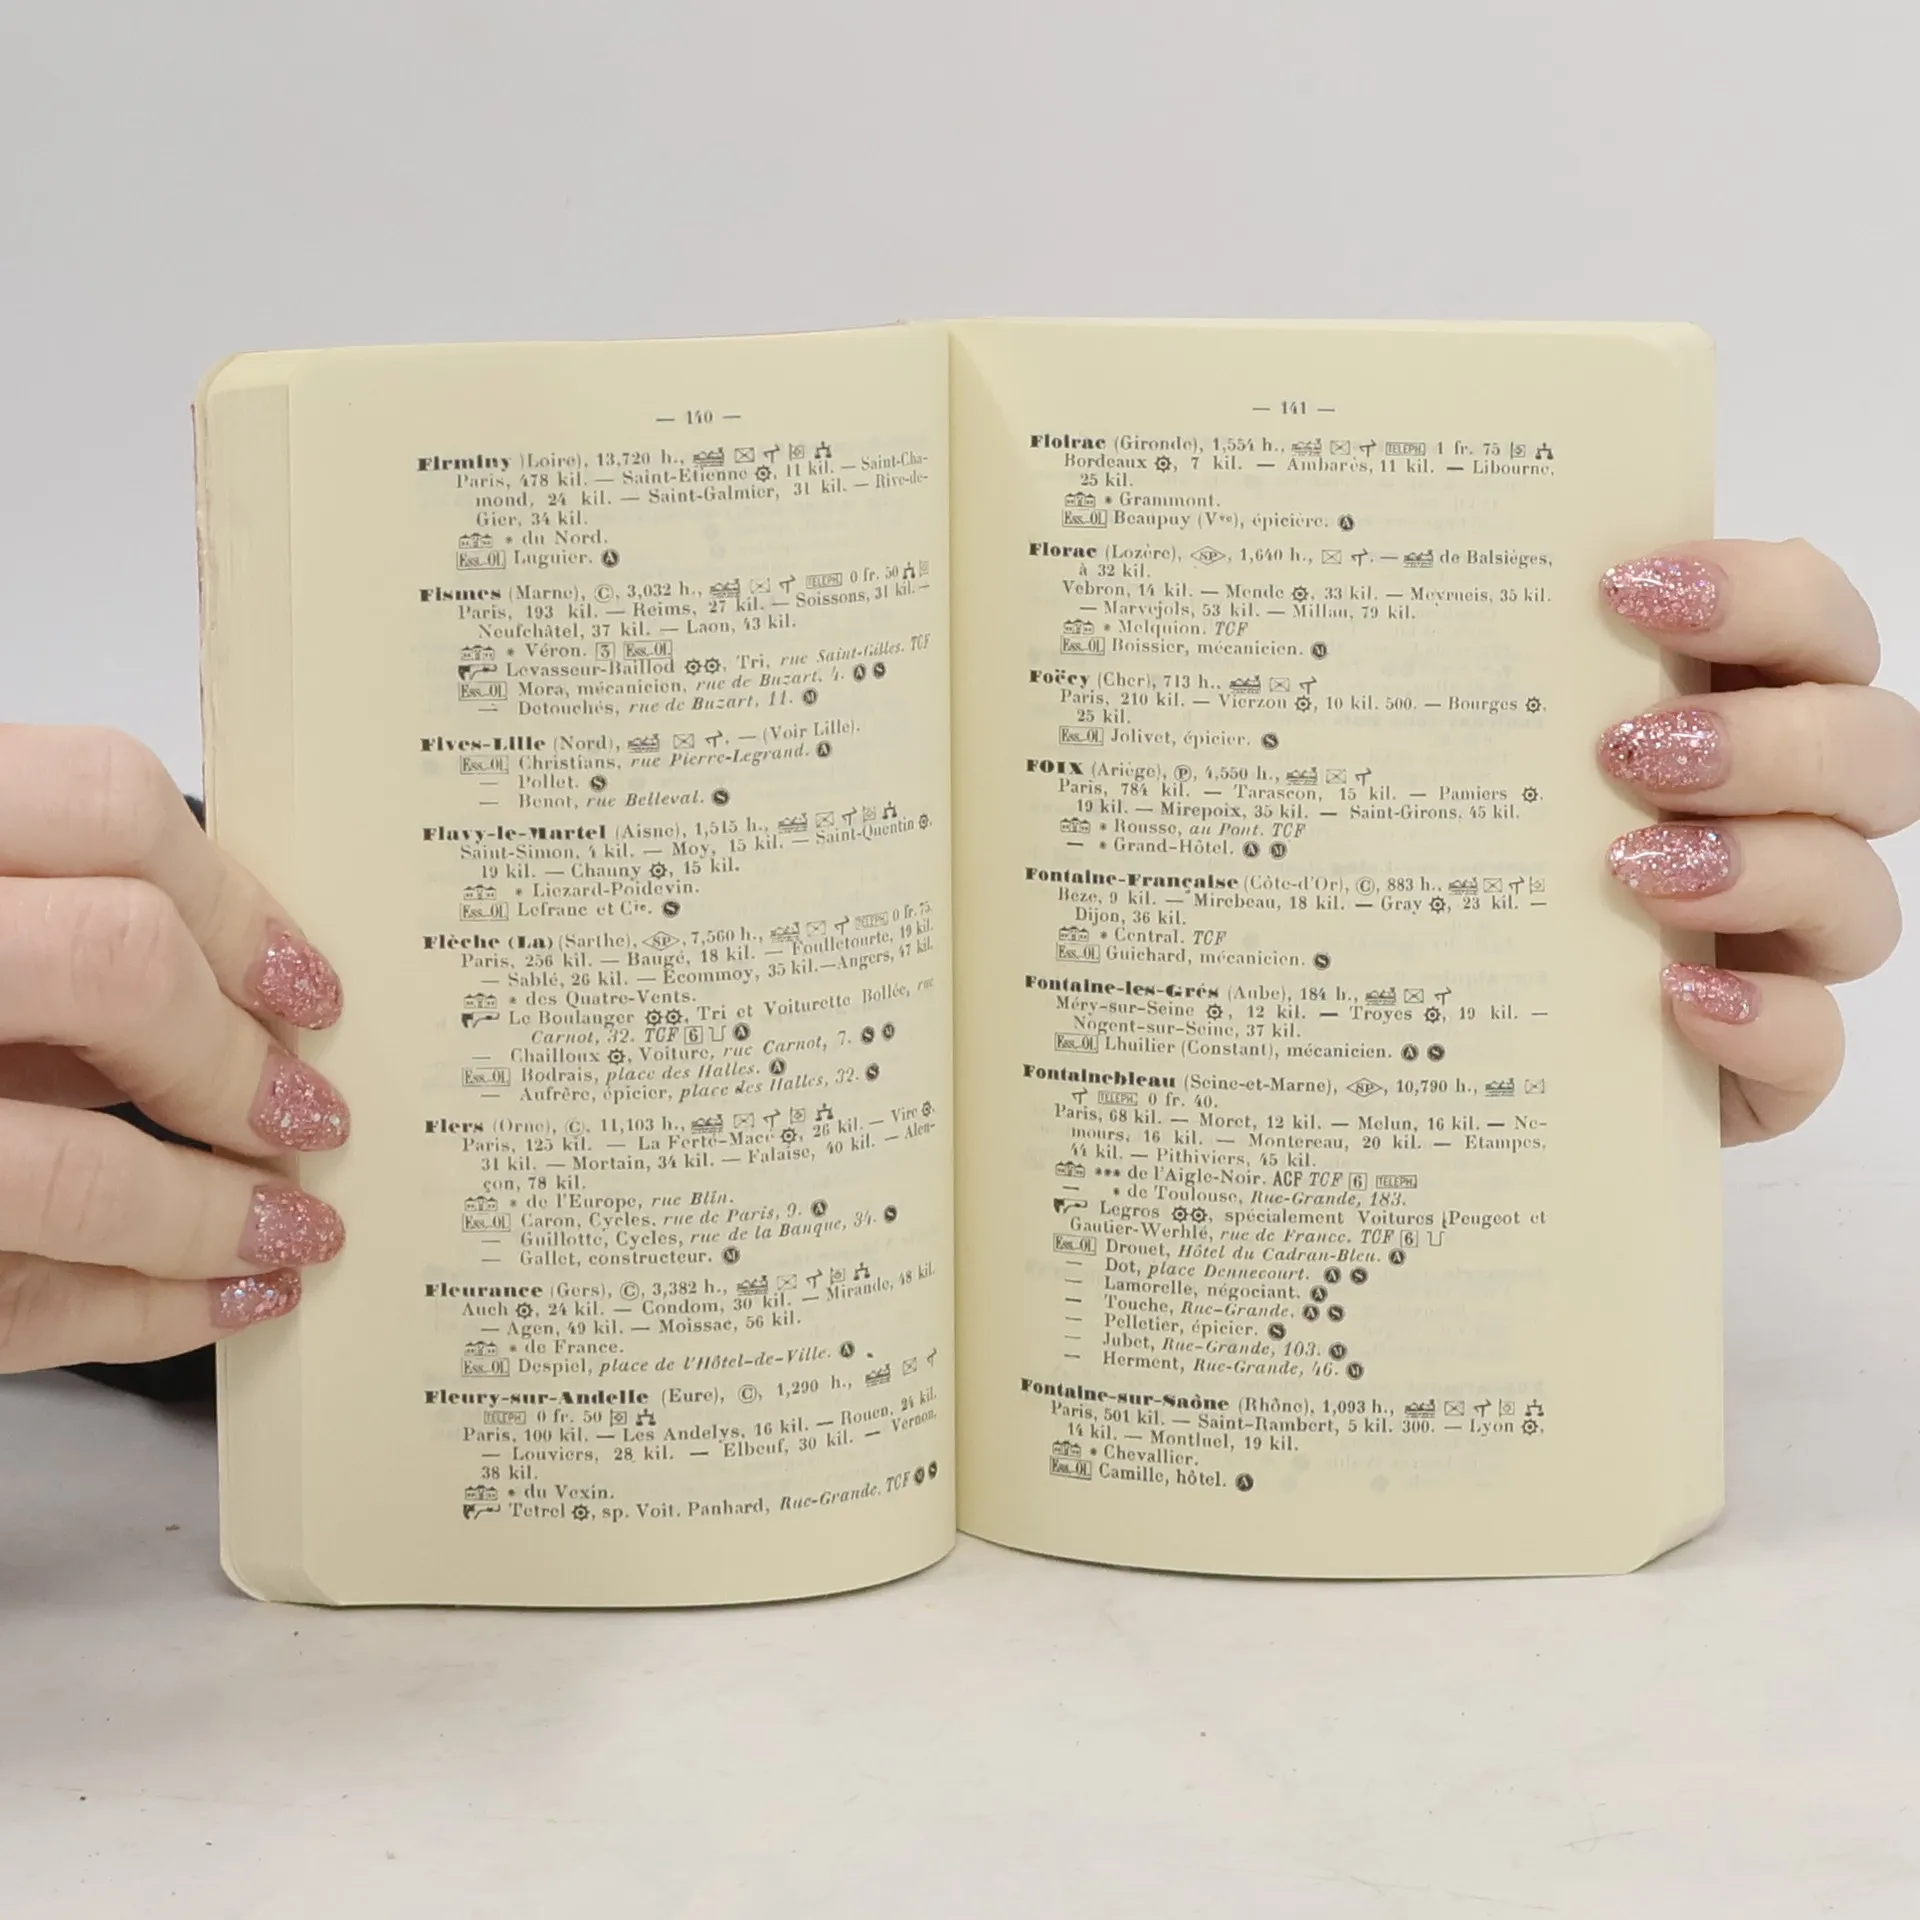 — 140 —
Firminy (Loire), 13,720 h.,
Paris, 478 kil. — Saint-Etienne, 11 kil. — Saint-Cha-
mond, 24 kil. — Saint-Galmier, 31 kil. — Rive-de-
Gier, 34 kil.
* du Nord.
Ess. OL Luguier. A
Fismes (Marne), C, 3,032 h., TELEPH. 0 fr. 50
Paris, 193 kil. — Reims, 27 kil. — Soissons, 31 kil. —
Neufchâtel, 37 kil. — Laon, 43 kil.
* Véron. 3 Ess. OL
Levasseur-Baillod, Tri, rue Saint-Gilles. TCF
Ess. OL Mora, mécanicien, rue de Buzart, 4. A S
— Detouchés, rue de Buzart, 11. M
Fives-Lille (Nord), . — (Voir Lille).
Ess. OL Christians, rue Pierre-Legrand. A
— Pollet. S
— Benot, rue Belleval. S
Flavy-le-Martel (Aisne), 1,515 h.,
Saint-Simon, 4 kil. — Moy, 15 kil. — Saint-Quentin,
19 kil. — Chauny, 15 kil.
* Liezard-Poidevin.
Ess. OL Lefranc et Cie. S
Flèche (La) (Sarthe), SP, 7,560 h., TELEPH. 0 fr. 75.
Paris, 256 kil. — Baugé, 18 kil. — Foulletourte, 19 kil.
— Sablé, 26 kil. — Ecommoy, 35 kil. — Angers, 47 kil.
* des Quatre-Vents.
Le Boulanger, Tri et Voiturette Bollée, rue
Carnot, 32. TCF 6 A
— Chailloux, Voiture, rue Carnot, 7. S M
Ess. OL Bodrais, place des Halles. A
— Aufrère, épicier, place des Halles, 32. S
Flers (Orne), C, 11,103 h.,
Paris, 125 kil. — La Ferté-Macé, 26 kil. — Vire,
31 kil. — Mortain, 34 kil. — Falaise, 40 kil. — Alen-
çon, 78 kil.
* de l'Europe, rue Blin.
Ess. OL Caron, Cycles, rue de Paris, 9. A
— Guillotte, Cycles, rue de la Banque, 34. S
— Gallet, constructeur. M
Fleurance (Gers), C, 3,382 h.,
Auch, 24 kil. — Condom, 30 kil. — Mirande, 48 kil.
— Agen, 49 kil. — Moissac, 56 kil.
* de France.
Ess. OL Despiel, place de l'Hôtel-de-Ville. A
Fleury-sur-Andelle (Eure), C, 1,290 h.,
TELEPH. 0 fr. 50
Paris, 100 kil. — Les Andelys, 16 kil. — Rouen, 24 kil.
— Louviers, 28 kil. — Elbeuf, 30 kil. — Vernon,
38 kil.
* du Vexin.
Tetrel, sp. Voit. Panhard, Rue-Grande. TCF M S
— 141 —
Floirac (Gironde), 1,554 h., TELEPH. 1 fr. 75
Bordeaux, 7 kil. — Ambarès, 11 kil. — Libourne,
25 kil.
* Grammont.
Ess. OL Beaupuy (Vve), épicière. A
Florac (Lozère), SP, 1,640 h., . — de Balsièges,
à 32 kil.
Vebron, 14 kil. — Mende, 33 kil. — Meyrueis, 35 kil.
— Marvejols, 53 kil. — Millau, 79 kil.
* Melquion. TCF
Ess. OL Boissier, mécanicien. M
Foëcy (Cher), 713 h.,
Paris, 210 kil. — Vierzon, 10 kil. 500. — Bourges,
25 kil.
Ess. OL Jolivet, épicier. S
FOIX (Ariège), P, 4,550 h.,
Paris, 784 kil. — Tarascon, 15 kil. — Pamiers,
19 kil. — Mirepoix, 35 kil. — Saint-Girons, 45 kil.
* Rousse, au Pont. TCF
— * Grand-Hôtel. A M
Fontaine-Française (Côte-d'Or), C, 883 h.,
Bèze, 9 kil. — Mirebeau, 18 kil. — Gray, 23 kil. —
Dijon, 36 kil.
* Central. TCF
Ess. OL Guichard, mécanicien. S
Fontaine-les-Grés (Aube), 184 h.,
Méry-sur-Seine, 12 kil. — Troyes, 19 kil. —
Nogent-sur-Seine, 37 kil.
Ess. OL Lhuilier (Constant), mécanicien. A S
Fontainebleau (Seine-et-Marne), SP, 10,790 h.,
TELEPH. 0 fr. 40.
Paris, 68 kil. — Moret, 12 kil. — Melun, 16 kil. — Ne-
mours, 16 kil. — Montereau, 20 kil. — Etampes,
44 kil. — Pithiviers, 45 kil.
*** de l'Aigle-Noir. ACF TCF 6 TELEPH.
— * de Toulouse, Rue-Grande, 183.
Legros, spécialement Voitures Peugeot et
Gautier-Werhlé, rue de France. TCF 6
Ess. OL Drouet, Hôtel du Cadran-Bleu. A
— Dot, place Dennecourt. A S
— Lamorelle, négociant. A
— Touche, Rue-Grande. A S
— Pelletier, épicier. S
— Jubet, Rue-Grande, 103. M
— Herment, Rue-Grande, 46. M
Fontaine-sur-Saône (Rhône), 1,093 h.,
Paris, 501 kil. — Saint-Rambert, 5 kil. 300. — Lyon,
14 kil. — Montluel, 19 kil.
* Chevallier.
Ess. OL Camille, hôtel. A